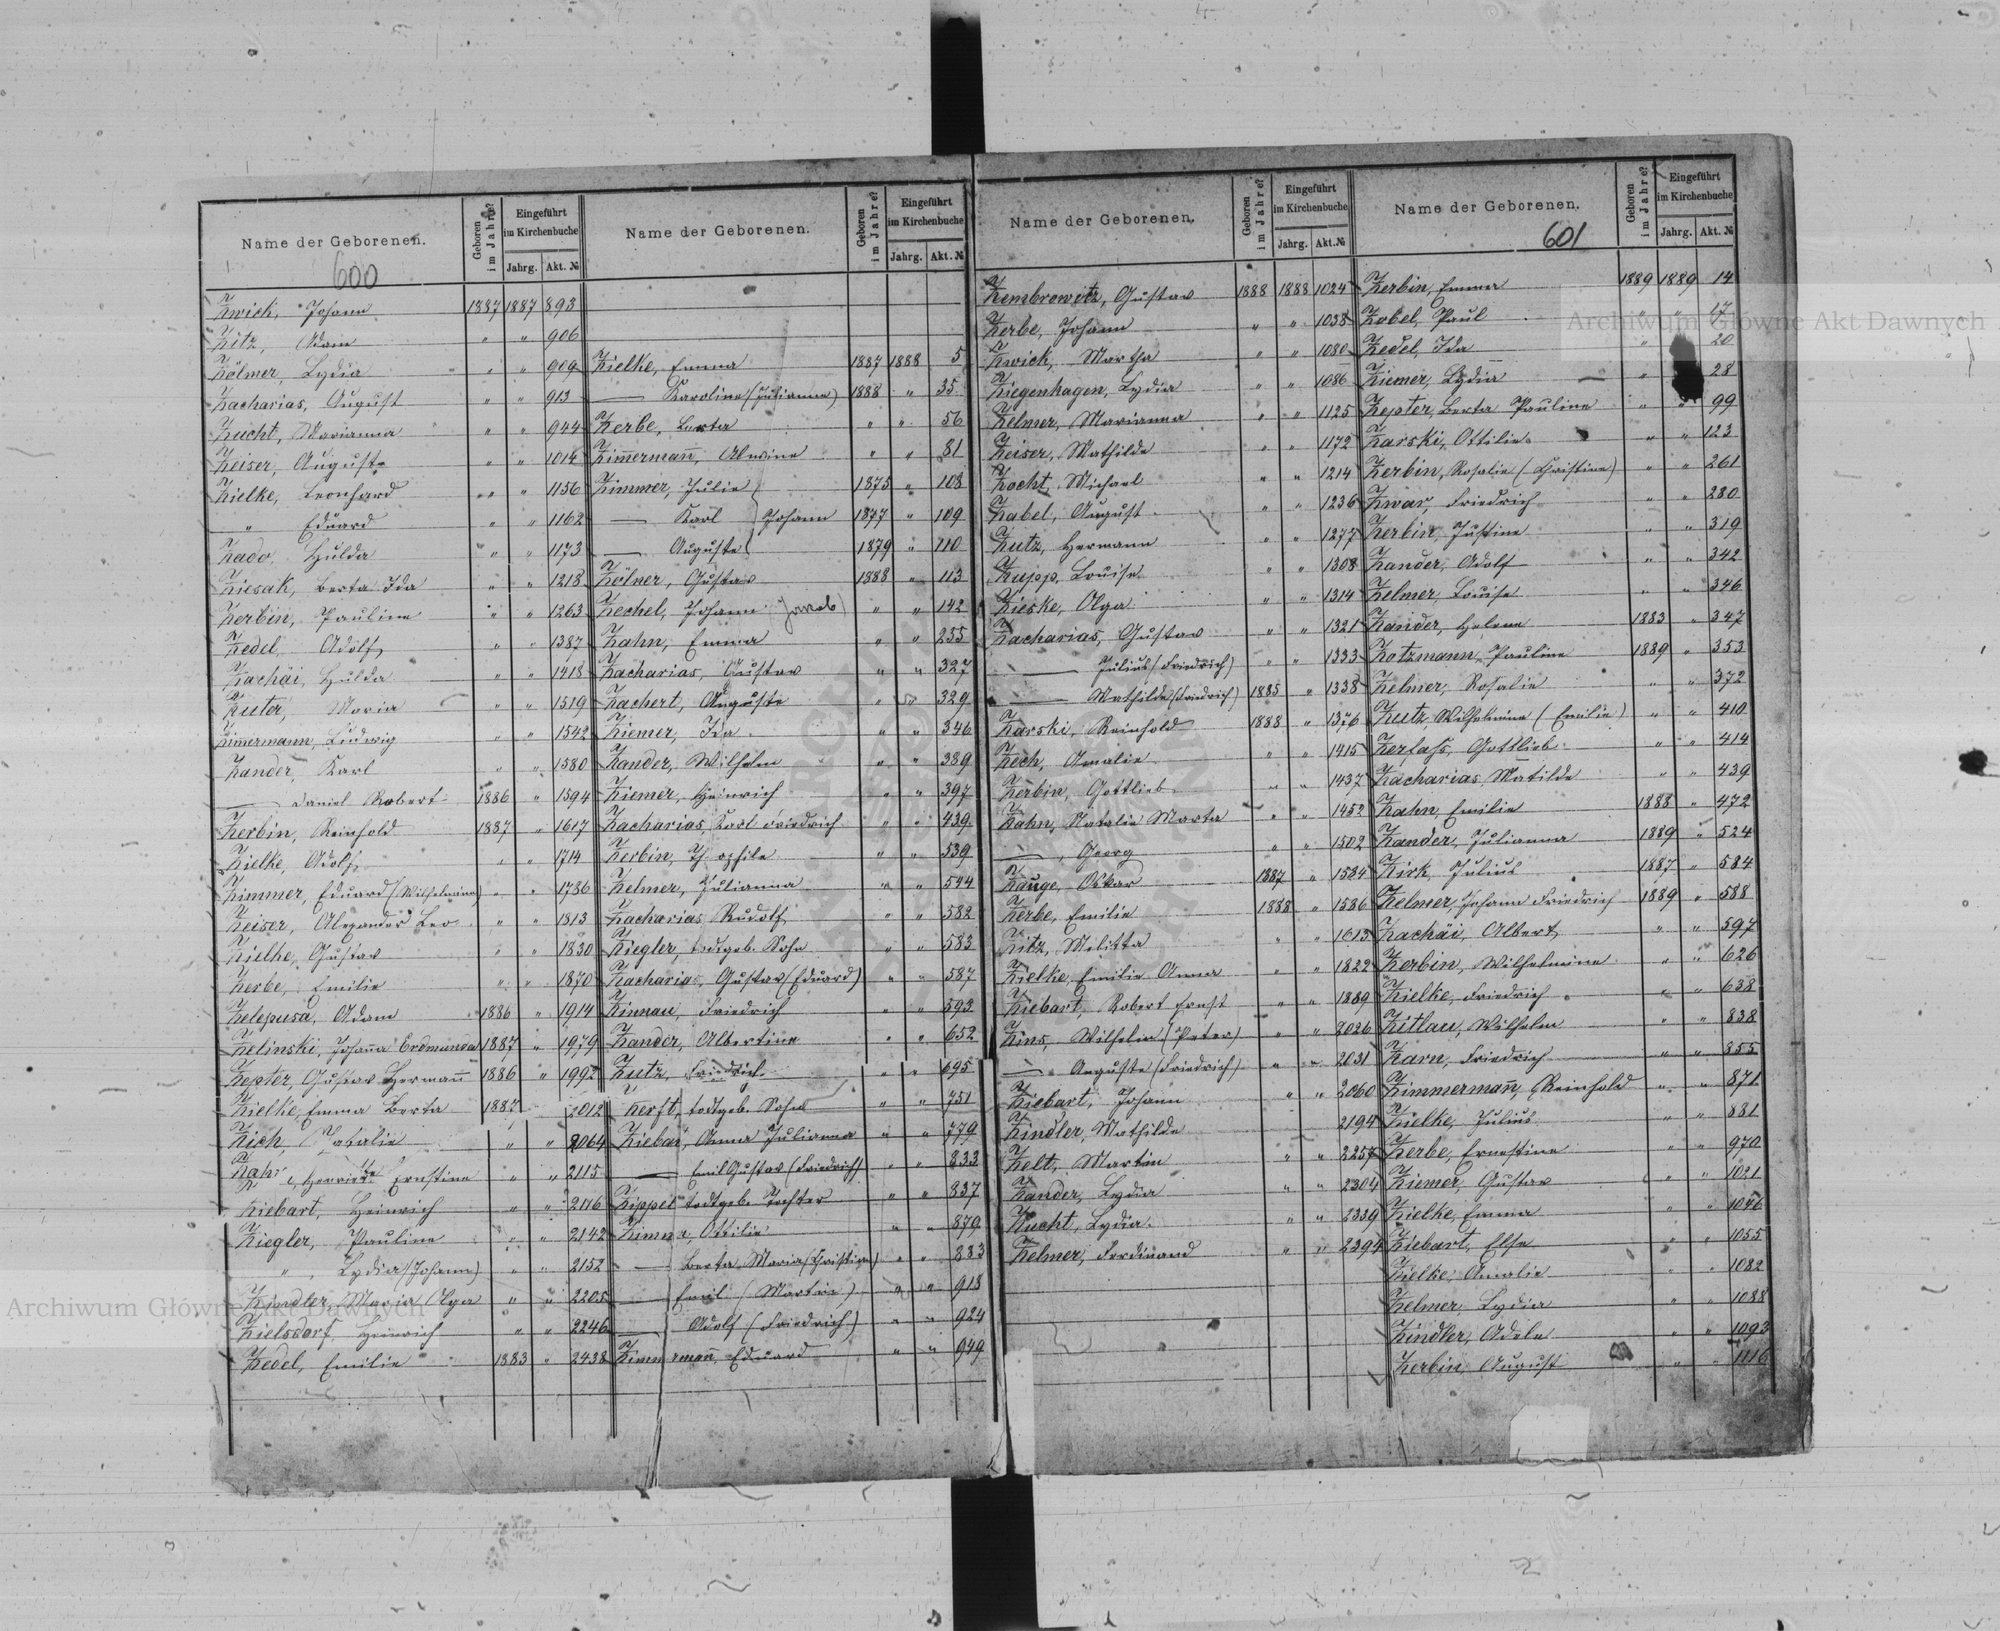 Name der Geborenen.
Geboren im Jahre?
Eingeführt im Kirchenbuche
Jahrg. Akt. №
600
Zwick, Johann 1887 1887 893
Zitz, Adam " " 906
Zölmer, Lydia " " 909
Zacharias, August " " 913
Zucht, Marianna " " 944
Zeiser, Auguste " " 1014
Zielke, Leonhard " " 1156
" Eduard " " 1162
Zado, Hulda " " 1173
Ziesak, Berta Ida " " 1218
Zerbin, Pauline " " 1263
Zedel, Adolf " " 1387
Zachäi, Hulda " " 1418
Zuter, Maria " " 1519
Zimmermann, Ludwig " " 1542
Zander, Karl " " 1580
— Daniel Robert 1886 " 1594
Zerbin, Reinhold 1887 " 1617
Zielke, Adolf " " 1714
Zimmer, Eduard (Wilhelmine) " " 1786
Zeiser, Alexander Leo " " 1813
Zielke, Gustav " " 1830
Zerbe, Emilie " " 1870
Zelepusa, Adam 1886 " 1914
Zelinski, Johanna Erdmunda 1887 " 1979
Zepter, Gustav Hermann 1886 " 1992
Zielke, Emma Berta 1887 2012
Zich, Natalie " " 2064
Henriette Ernstine " " 2115
Ziebart, Heinrich " " 2116
Ziegler, Pauline " " 2142
" , Lydia (Johann) " " 2152
Zindler, Maria Olga " " 2205
Zielsdorf, Heinrich " " 2246
Zedel, Emilie 1883 " 2438
Name der Geborenen.
Geboren im Jahre?
Eingeführt im Kirchenbuche
Jahrg. Akt. №
Zielke, Emma 1887 1888 5
— Karoline (Julianna) 1888 " 35
Zerbe, Berta " " 56
Zimmermann, Alwine " " 81
Zimmer, Julie 1875 " 108
— Karl Johann 1877 " 109
— Auguste 1879 " 110
Zölner, Gustav 1888 " 113
Zechel, Johann (Jacob) " " 142
Zahn, Emma " " 255
Zacharias, Gustav " " 327
Zachert, Auguste " " 329
Ziemer, Ida " " 346
Zander, Wilhelm " " 389
Ziemer, Heinrich " " 397
Zacharias, Karl Friedrich " " 439
Zerbin, Th ophile " " 539
Zelmer, Julianna " " 544
Zacharias, Rudolf " " 582
Ziegler, todtgeb. Sohn " " 583
Zacharias, Gustav (Eduard) " " 587
Zinnau, Friedrich " " 593
Zander, Albertine " " 652
Zutz, Friedrich " " 695
Zerft, todtgeb. Sohn " " 751
Ziebar, Anna Julianna " " 779
— Emil Gustav (Friedrich) " " 833
Zippel todtgeb. Tochter " " 837
Ottilie " " 879
— Berta Maria (Christian) " " 883
— Emil (Martin) " " 918
— Adolf (Friedrich) " " 924
Zimmermann, Eduard " " 949
Name der Geborenen.
Geboren im Jahre?
Eingeführt im Kirchenbuche
Jahrg. Akt. №
Zembrowitz, Gustav 1888 1888 1024
Zerbe, Johann " " 1038
Zwick, Martha " " 1080
Ziegenhagen, Lydia " " 1086
Zelmer, Marianna " " 1125
Zeiser, Mathilde " " 1172
Zocht, Michael " " 1214
Zabel, August " " 1236
Zutz, Hermann " " 1277
Zupp, Louise " " 1308
Zieske, Olga " " 1314
Zacharias, Gustav " " 1321
— Julius (Friedrich) " " 1333
— Mathilde (Friedrich) 1885 " 1338
Zarski, Reinhold 1888 " 1376
Zech, Amalie " " 1415
Zerbin, Gottlieb " " 1437
Zahn, Natalie Marta " " 1452
— , Georg " " 1502
Zauge, Oskar 1887 " 1584
Zerbe, Emilie 1888 " 1586
Zitz, Melitta " " 1613
Zielke, Emilie Anna " " 1822
Ziebart, Robert Ernst " " 1889
Zins, Wilhelm (Peter) " " 2026
— Auguste (Friedrich) " " 2031
Ziebart, Johann " " 2060
Zindler, Mathilde 2194
Zelt, Martin " " 2257
Zander, Lydia " " 2304
Zucht, Lydia " " 2339
Zelmer, Ferdinand " " 2394
Name der Geborenen.
Geboren im Jahre?
Eingeführt im Kirchenbuche
Jahrg. Akt. №
601
Zerbin, Emma 1889 1889 14
Zobel, Paul " " 17
Zedel, Ida " 20
Ziemer, Lydia " 28
Zepter, Berta Pauline " " 99
Zarski, Ottilie " " 123
Zerbin, Rosalie (Christine) " " 261
Zwar, Friedrich " " 280
Zerbin, Justine " " 319
Zander, Adolf " " 342
Zelmer, Louise " " 346
Zander, Helene 1883 " 347
Zotzmann, Pauline 1889 " 353
Zelmer, Rosalie " " 372
Zutz, Wilhelmine (Emilie) " " 410
Zerfass, Gottlieb " " 414
Zacharias, Matilde " " 439
Zahn, Emilie 1888 " 472
Zander, Julianna 1889 " 524
Zirk, Julius 1887 " 584
Zelmer, Johann Friedrich 1889 " 588
Zachäi, Albert " " 597
Zerbin, Wilhelmine " " 626
Zielke, Friedrich " " 638
Zitlau, Wilhelm " " 838
Zarn, Friedrich " " 855
Zimmermann, Reinhold " " 871
Zielke, Julius " " 881
Zerbe, Ernestine " " 970
Ziemer, Gustav " " 1021
Zielke, Emma " " 1046
Ziebart, Else " " 1055
Zielke, Amalie " " 1082
Zelmer, Lydia " " 1088
Zindler, Adele " " 1093
Zerbin, August " " 1116
Archiwum Główne Akt Dawnych
Archiwum Główne Akt Dawnych